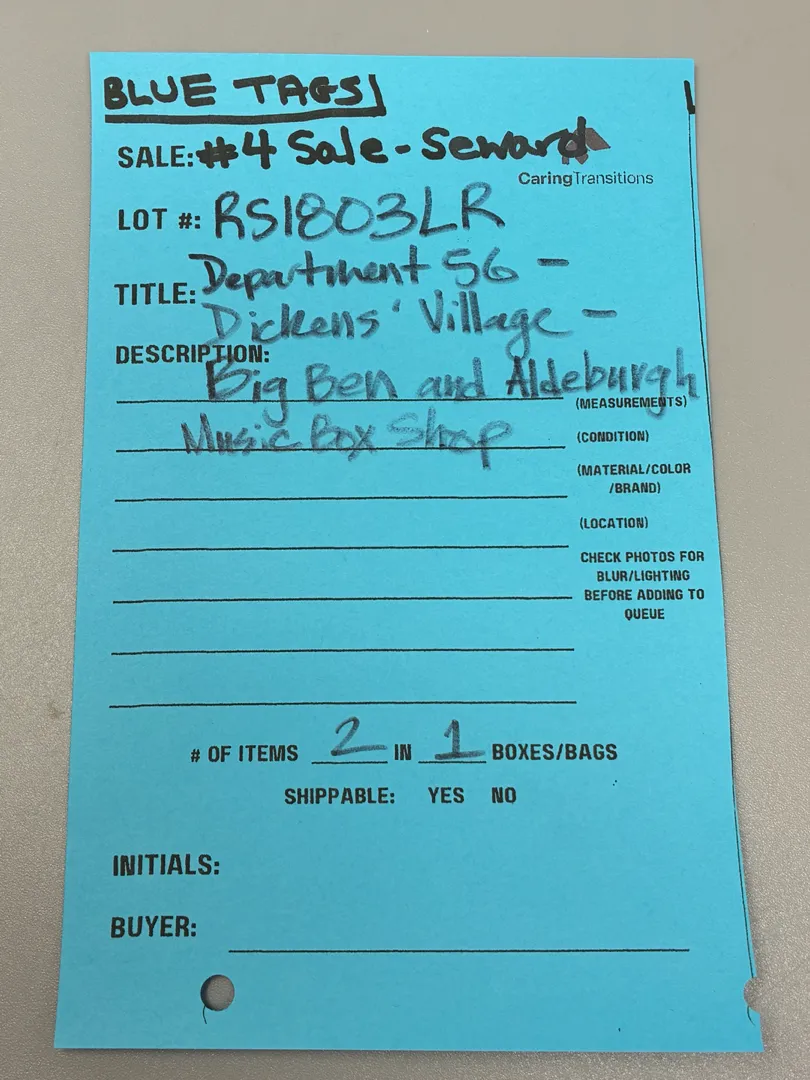 BLUE TAGS
SALE: #4 Sale - Seward
CaringTransitions
LOT #: RS1803LR
TITLE: Department 56 -
Dickens' Village -
DESCRIPTION:
Big Ben and Aldeburgh
(MEASUREMENTS)
Music Box Shop
(CONDITION)
(MATERIAL/COLOR
/BRAND)
(LOCATION)
CHECK PHOTOS FOR
BLUR/LIGHTING
BEFORE ADDING TO
QUEUE
# OF ITEMS 2 IN 1 BOXES/BAGS
SHIPPABLE: YES NO
INITIALS:
BUYER: